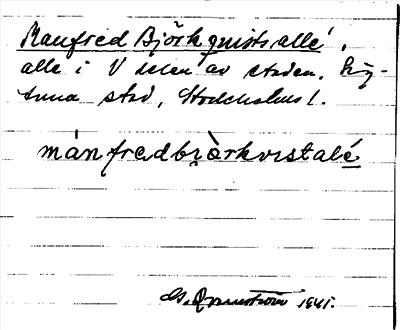 Manfred Björkquists allé,
allé i V delen av staden. Sig-
tuna stad, Stockholms l.
mánfredbjò̀rkvistalé
1941.